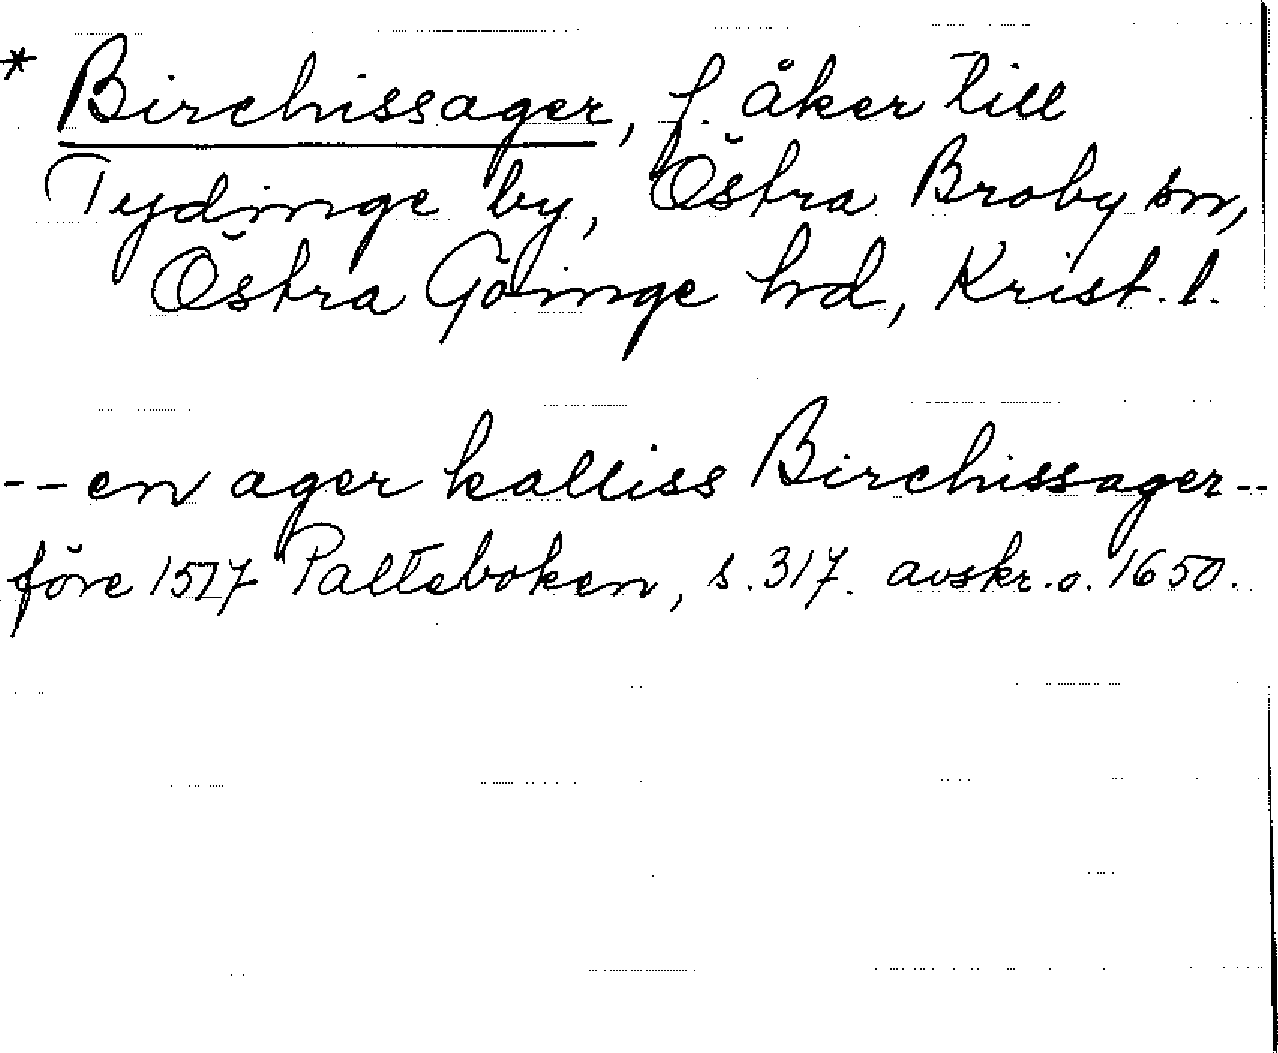 * Birchissager, f. åker till
Tydinge by, Östra Broby sn,
Östra Göinge hd, Krist. l.
-- en ager kalliss Birchissager --
före 1527 Palteboken, s. 317. avskr. o. 1650.